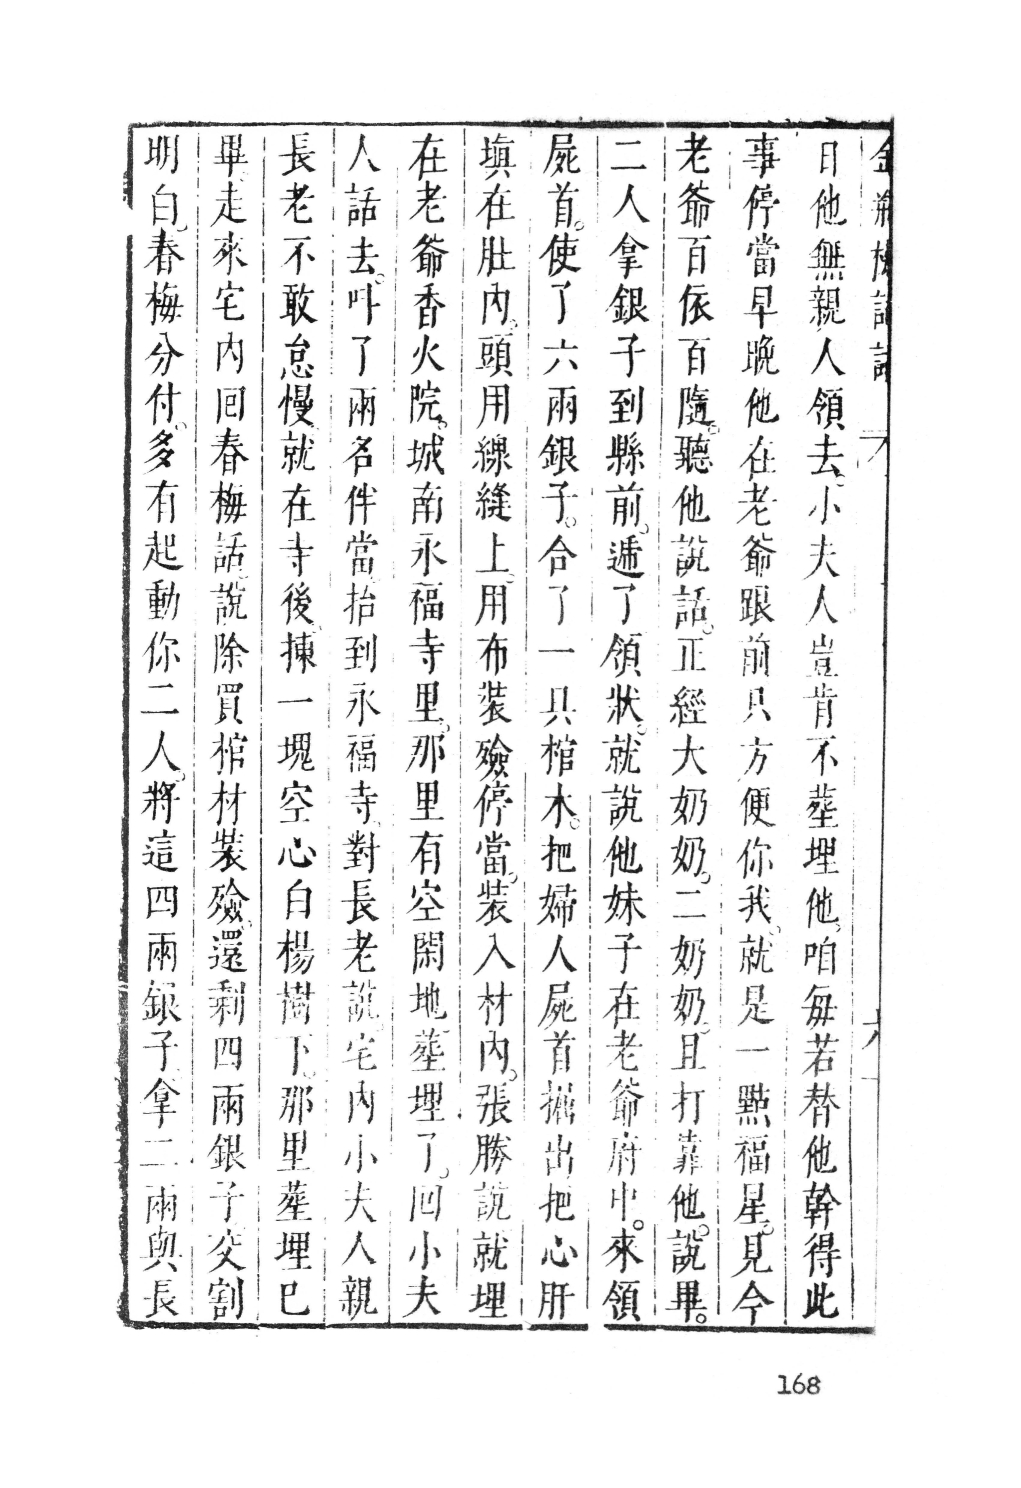 金瓶梅詞話
日他無親人領去。小夫人豈肯不塟埋他。咱每若替他幹得此
事停當早晩他在老爺跟前只方便你我。就是一點福星。見今
老爺百依百隨。聽他說話。正經大奶奶。二奶奶。且打靠他。說畢。
二人拿銀子到縣前。遞了領狀。就說他妹子在老爺府中。來領
屍首。使了六兩銀子。合了一具棺木。把婦人屍首掘出把心肝
塡在肚內。頭用線縫上。用布裝殮停當。裝入材內。張勝說就埋
在老爺香火院。城南永福寺里。那里有空閑地塟埋了。回小夫
人話去。叫了兩名伴當。抬到永福寺。對長老說。宅內小夫人親
長老不敢怠慢。就在寺後。揀一塊空心白楊樹下。那里塟埋已
畢。走來宅內回春梅話。說除買棺材裝殮。還剩四兩銀子交割
明白。春梅分付。多有起動你二人。將這四兩銀子拿二兩與長
168